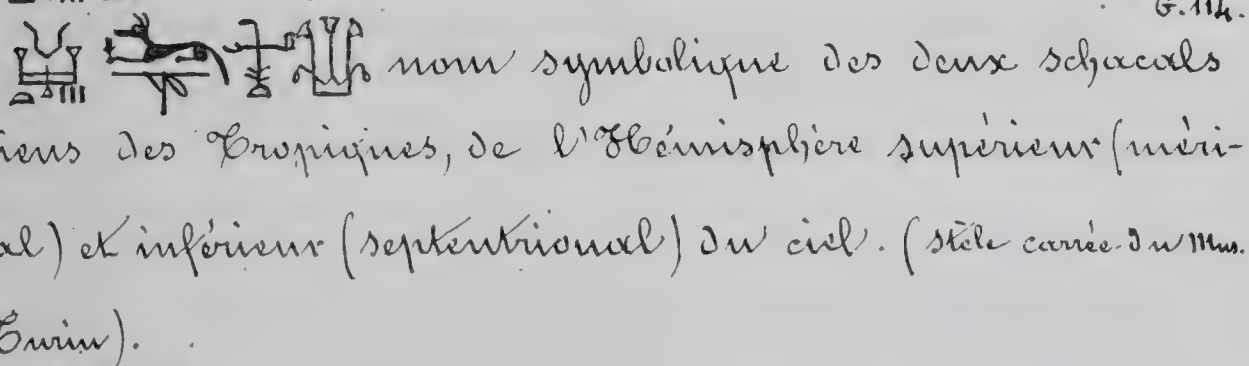 G.114.
nom symbolique des deux schacals
iens des Tropiques, de l'Hémisphère supérieur (méri-
al) et inférieur (septentrional) du ciel. (stèle carrée du Mus.
Turin).